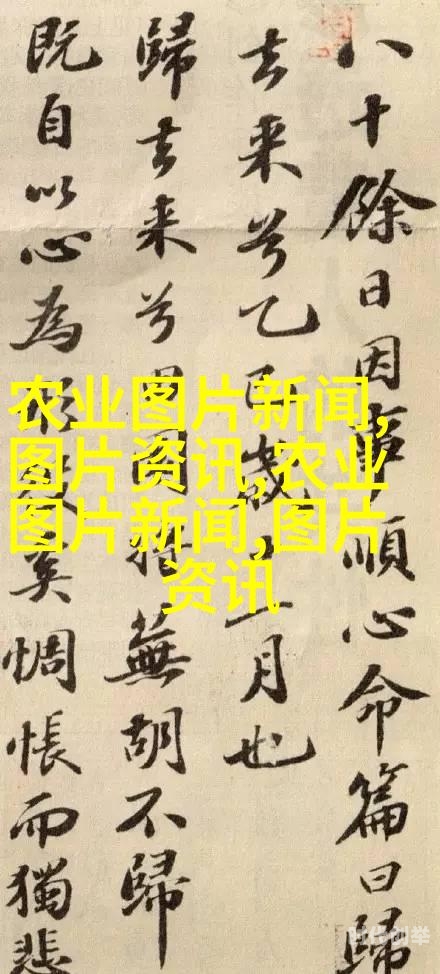 八十餘日因事順心命篇曰歸
去来兮乙巳歲十一月也
歸去来兮田園將蕪胡不歸
既自以心為形役奚惆悵而獨悲
农业图片新闻,
图片资讯,农业
图片新闻,图片
资讯